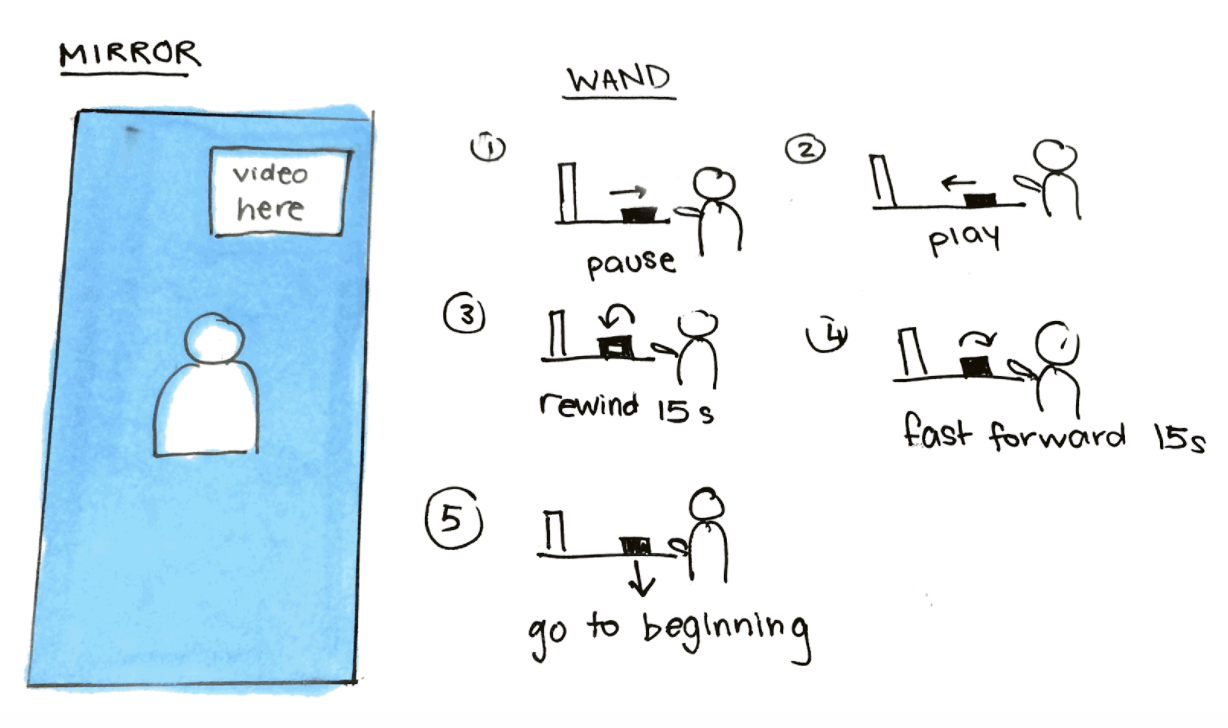 MIRROR
video
here
WAND
1
pause
2
play
3
rewind 15s
4
fast forward 15s
5
go to beginning